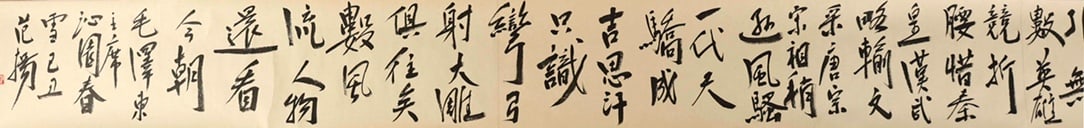 無
數英雄
競折
腰惜秦
皇漢武
略輸文
采唐宗
宋祖稍
遜風騷
一代天
驕成
吉思汗
只識
彎弓
射大雕
俱往矣
數風
流人物
還看
今朝
毛澤東
主席
沁園春
雪己丑
范揚